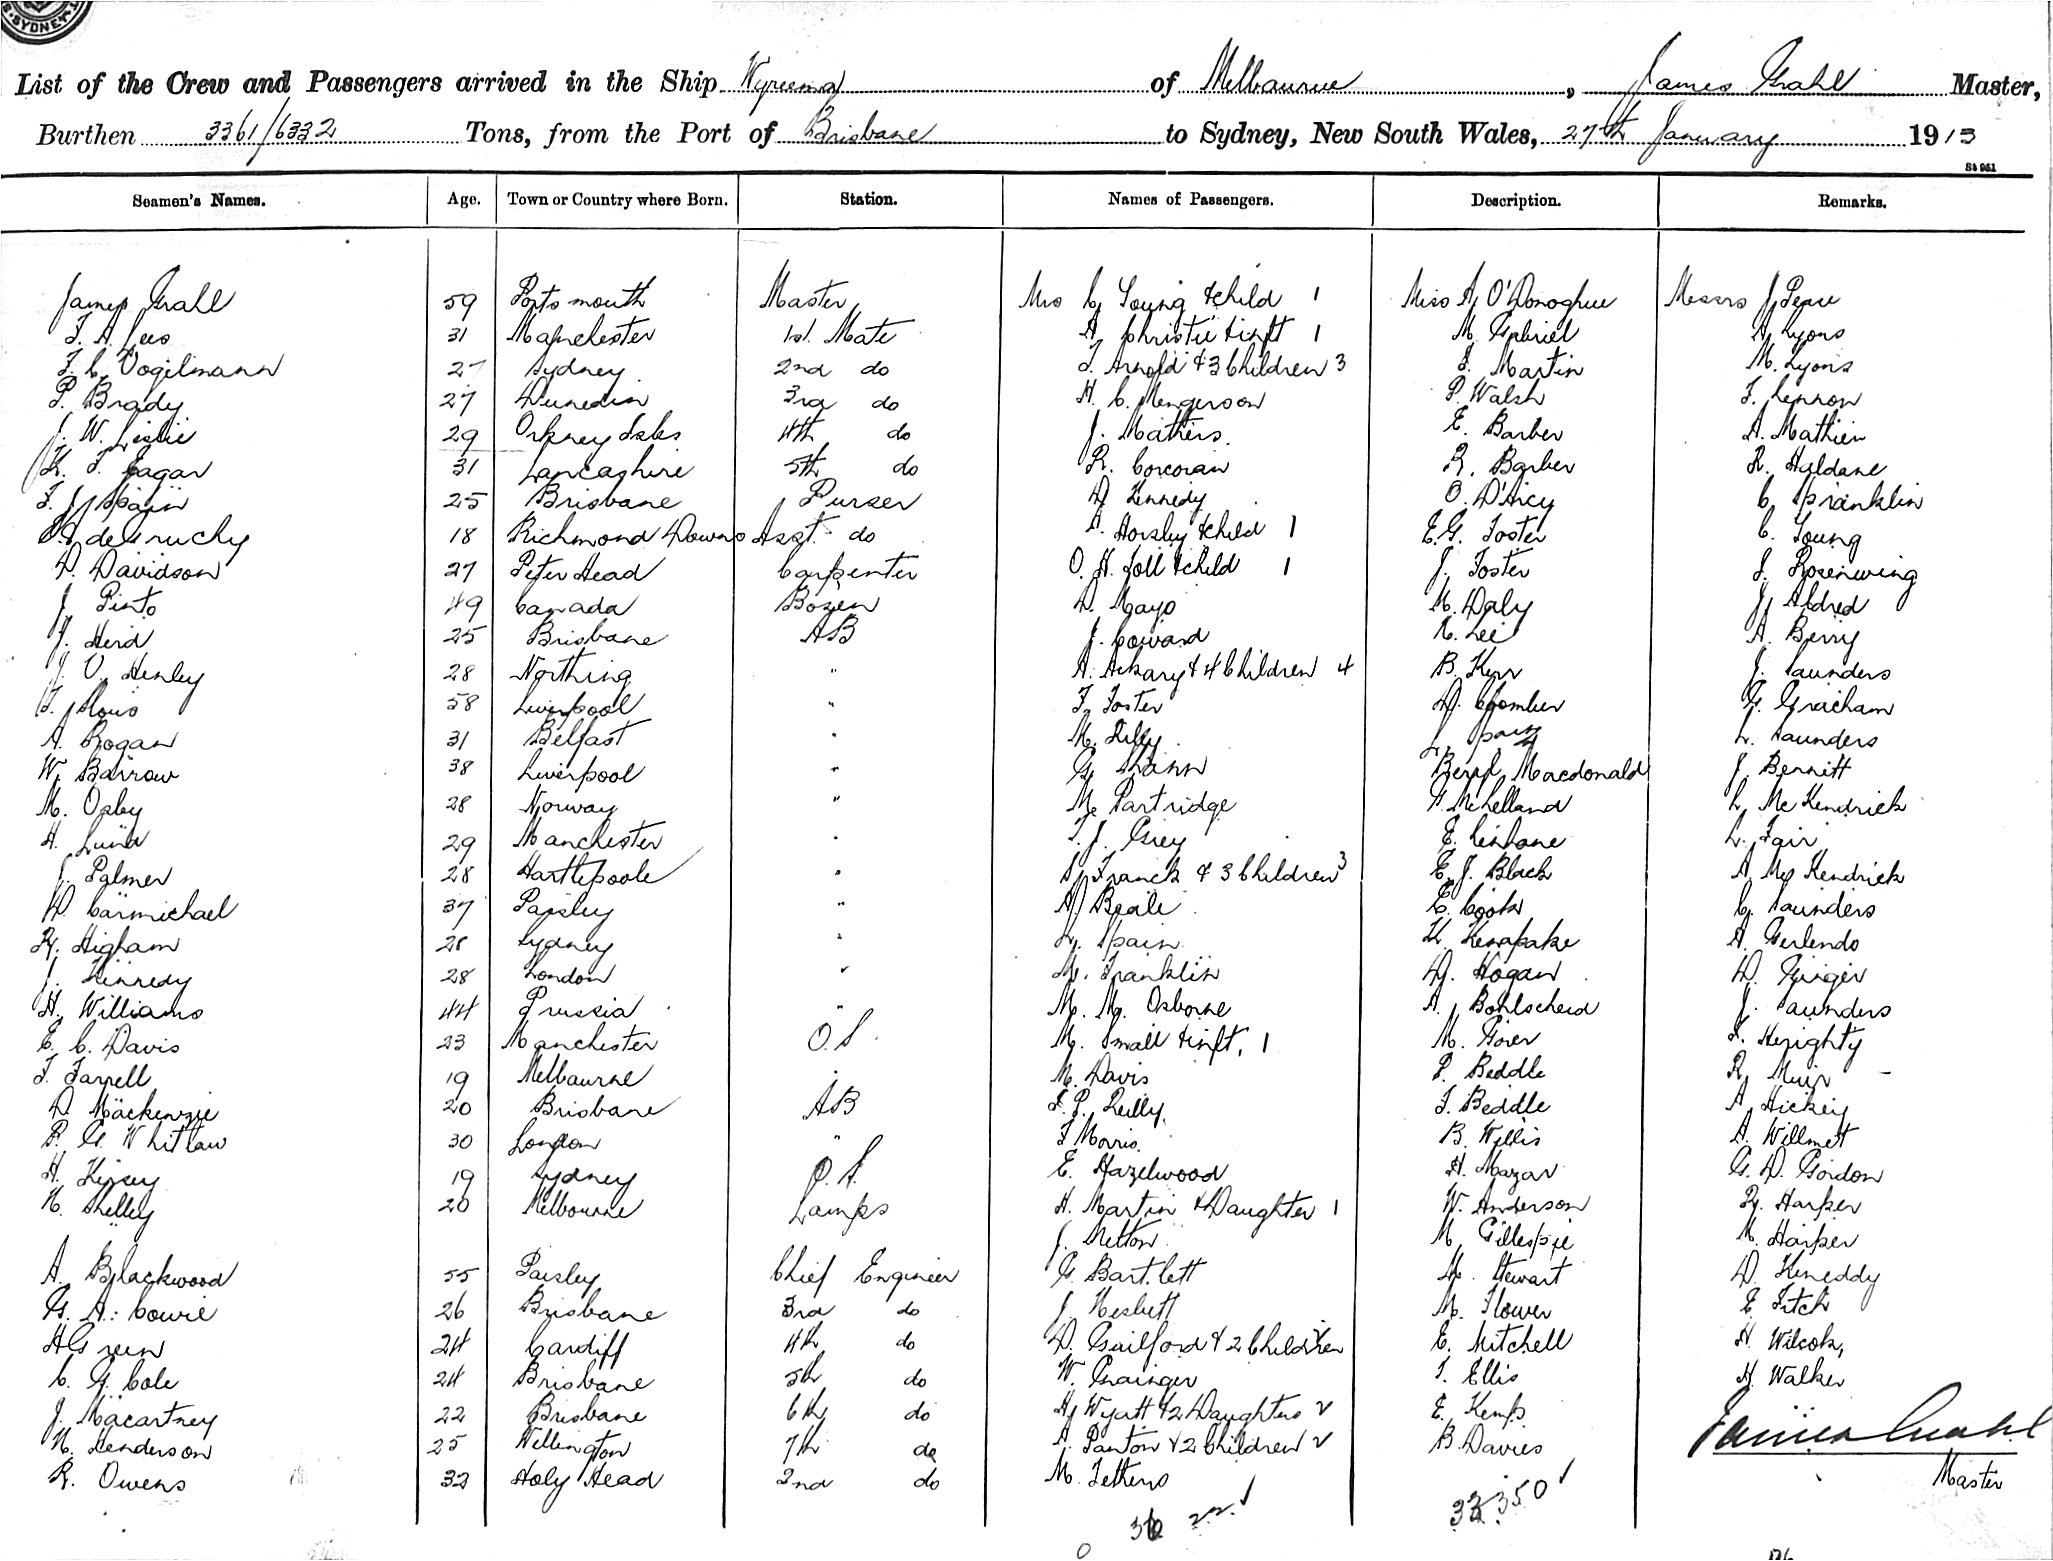 SYDNEY
List of the Crew and Passengers arrived in the Ship Wyreema of Melbourne, James Grahl Master,
Burthen 3361/6332 Tons, from the Port of Brisbane to Sydney, New South Wales, 27th January 1913
Seamen's Names. Age. Town or Country where Born. Station. Names of Passengers. Description. Remarks.
James Grahl 59 Portsmouth Master Mrs C. Young & child 1 Miss A. O'Donoghue Messrs J.
F. A. Lees 31 Manchester 1st Mate A. Christie & inft 1 M. Gabriel A. Lyons
F. C. Vogelmann 27 Sydney 2nd do T. Arnold & 3 Children 3 J. Martin M. Lyons
P. Brady 27 Dunedin 3rd do H. C. Mengerson P. Walsh F. Lennon
J. W. Leslie 29 Orkney Isles 4th do J. Mathers. E. Barber A. Mathieu
F. Eagar 31 Lancashire 5th do R. Corcoran R. Barber R. Haldane
F. J. Spain 25 Brisbane Purser D. Kennedy O. D'Arcy C. Spranklin
de Gruchy 18 Richmond Downs Asst. do A. Horsley & child 1 E. G. Foster C. Young
D. Davidson 27 Peter Head Carpenter O. H. Foll & child 1 J. Foster J. Rosenwing
J. Pinto 49 Canada Bozen D. Mayo M. Daly J. Aldred
J. Herd 25 Brisbane AB J. Coward Lee A. Berry
J. V. Henley 28 Northing " A. Ackary & 4 Children 4 B. Kerr J. Saunders
F. 58 Liverpool " F. Foster D. G. Gracham
A. Rogan 31 Belfast " M. L. Spain L. Saunders
W. Barrow 38 Liverpool " G. Shann Beryl Macdonald J. Bennitt
M. Opley 28 Norway " M. Partridge McLelland L. McKendrick
H. Lund 29 Manchester " T. J. Grey E. Linhane L. Fair
J. Palmer 28 Hartlepoole " S. Franck & 3 Children 3 E. J. Black A. McKendrick
D. Carmichael 37 Paisley " A. Beale E. Cook C. Saunders
R. Higham 28 Sydney " L. Spain K. Kerapake A. Gerlendo
J. Kennedy 28 London " M. Franklin D. Hogan D. Ginger
H. Williams 44 Prussia " M. M. Osborne A. Bohlscheid J. Saunders
E. C. Davis 23 Manchester O.S. M. Small & inft. 1 M. Gorer Herighty
F. Farrell 19 Melbourne M. Davis P. Beddle R. Muir
D. Mackenzie 20 Brisbane AB J. P. Reilly F. Beddle A. Hickey
P. G. Whitlaw 30 London " F. Morris. B. Willis A. Willmet
H. Kersey 19 Sydney O.S. E. Hazelwood H. Mazar G. D. Gordon
N. Shelley 20 Melbourne Lamps H. Martin & Daughter 1 W. Anderson R. Harper
J. Melton M. Gillespie M. Harper
A. Blackwood 55 Paisley Chief Engineer G. Bartlett M. Stewart D. Keneddy
G. A. Cowie 26 Brisbane 3rd do J. Nesbutt M. Flower E. Fitch
H Green 24 Cardiff 4th do D. Guilford & 2 Children E. Mitchell H. Wilcok,
C. G. Cole 24 Brisbane 5th do W. Grainger T. Ellis H. Walker
J. Macartney 22 Brisbane 6th do H. Wyatt & 2 Daughters 2 E. Kemp James Grahl
N. Henderson 25 Wellington 7th do A. Panton & 2 Children 2 B. Davies
R. Owens 32 Holy Head 2nd do M. Master
22 350